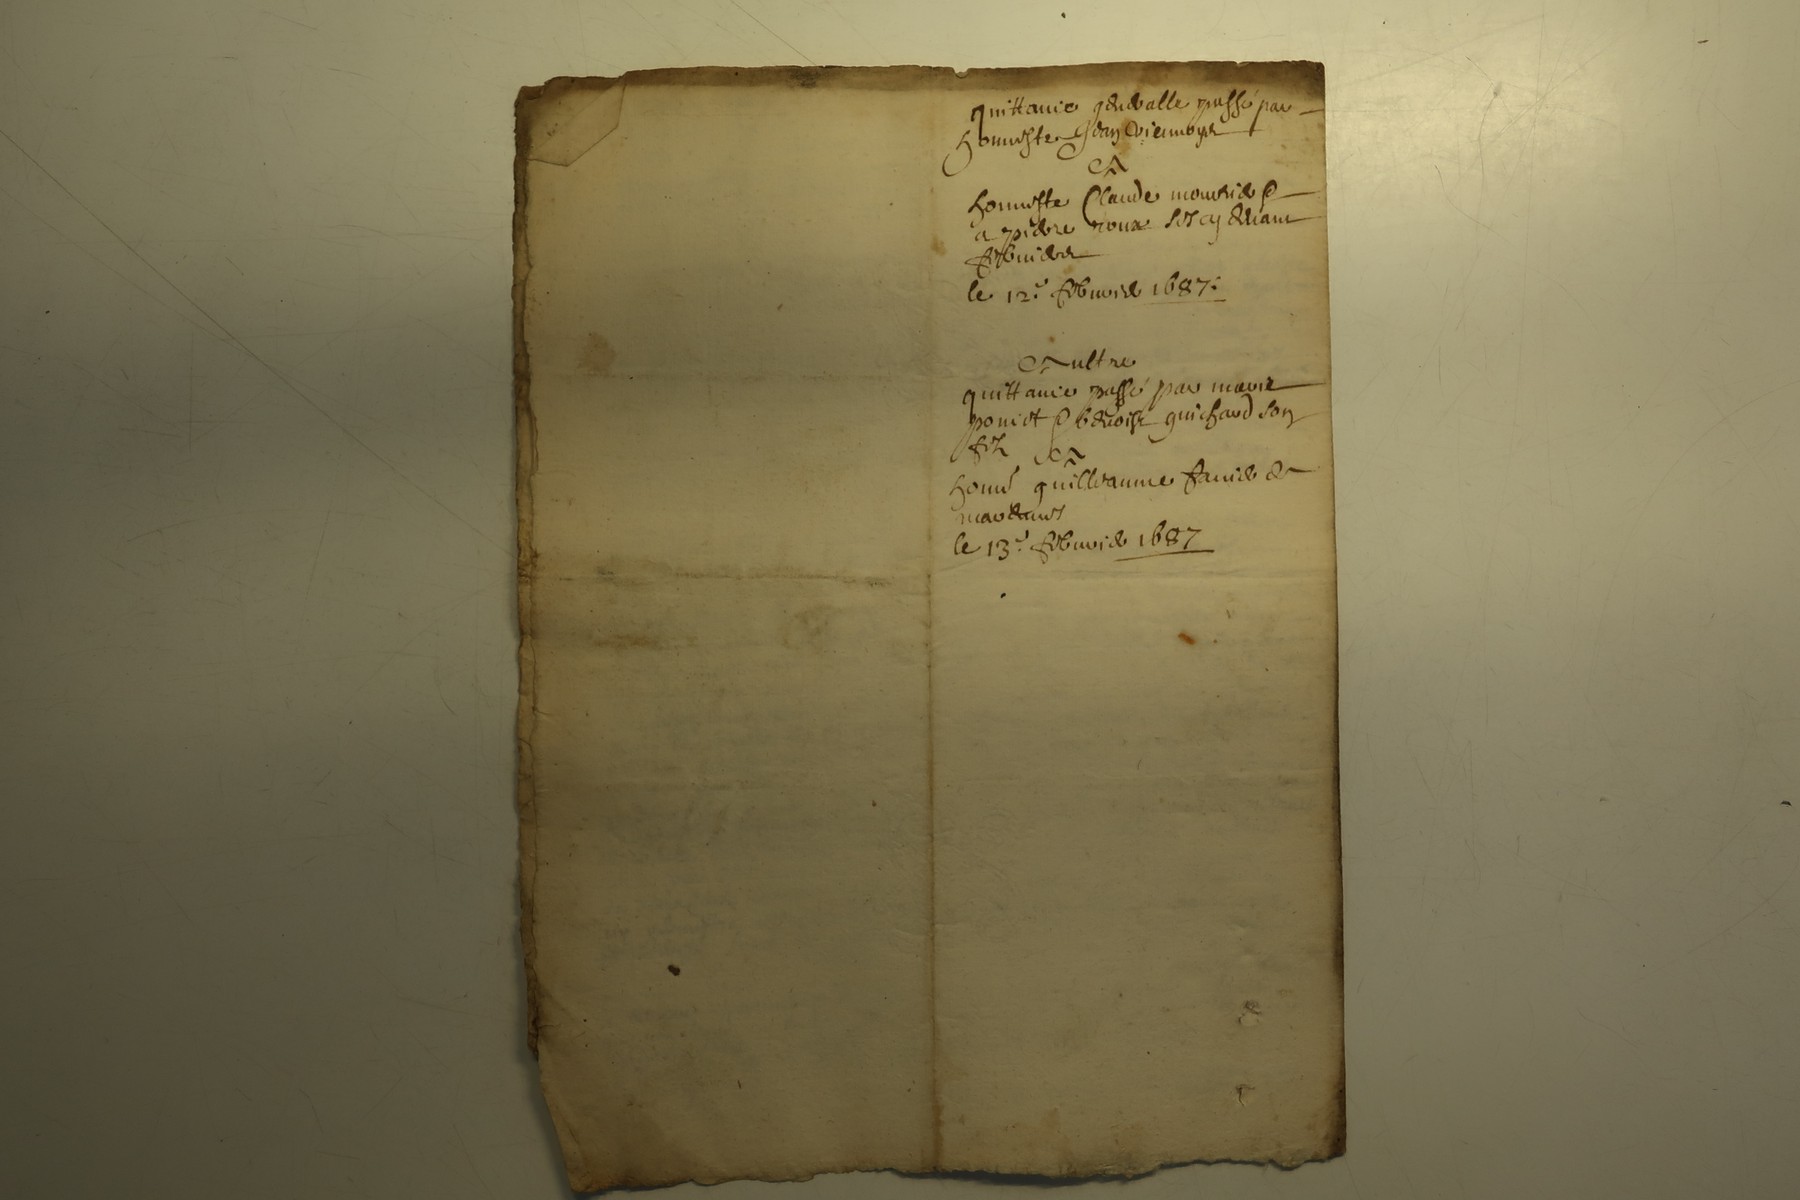 quittance generalle passé par
honneste Jean Viennoys
A
honneste Claude mourier &
a pierre roux ses cy devant
fermiers
le 12.e febvrier 1687.
Aultre
quittance passé par marie
ponict & benoist guichard son
filz A
honn.e guilleaume favier de
mardeuis
le 13.e febvrier 1687